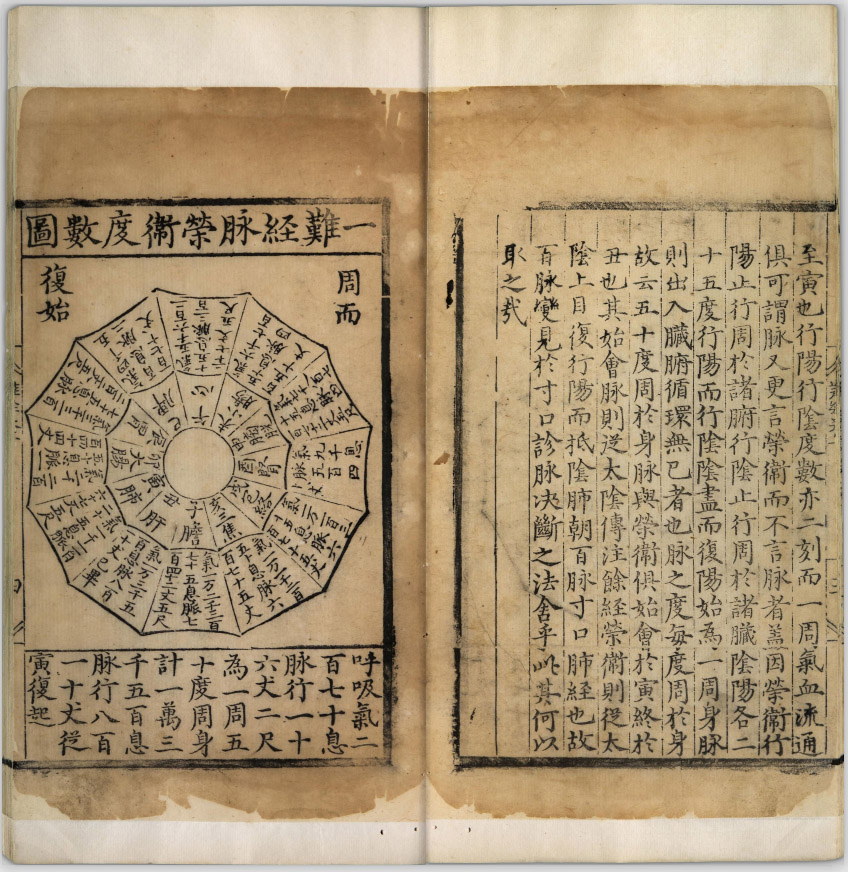 至寅也行陽行陰度數亦二刻而一周氣血流通
俱可謂脉又更言榮衛而不言脉者蓋因榮衛行
陽止行周於諸腑行陰止行周於諸臟陰陽各二
十五度行陽而行陰陰盡而復陽始為一周身脉
則出入臟腑循環無已者也脉之度每度周於身
故云五十度周於身脉與榮衛俱始會於寅終於
丑也其始會脉則從太陰傳注餘經榮衛則從太
陰上目復行陽而抵陰肺朝百脉寸口肺經也故
百脉變見於寸口診脉决斷之法舍乎此其何以
取之哉
一難經脉榮衛度數圖
周而
復始
午心
巳脾
辰胃
卯大腸
寅肺
丑肝
子膽
亥三焦
戌包絡
酉腎
申膀胱
未小腸
氣一万三千五
百息脉八百
十丈已畢
氣一万二千三百
七十五息脉七
百四十二丈五尺
呼吸氣二
百七十息
脉行一十
六丈二尺
為一周五
十度周身
計一萬三
千五百息
脉行八百
一十丈從
寅復起